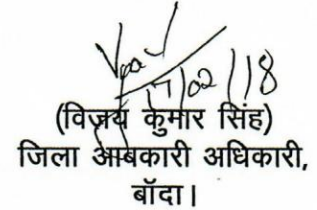 17/02/18
(विजय कुमार सिंह)
जिला आबकारी अधिकारी,
बॉदा।